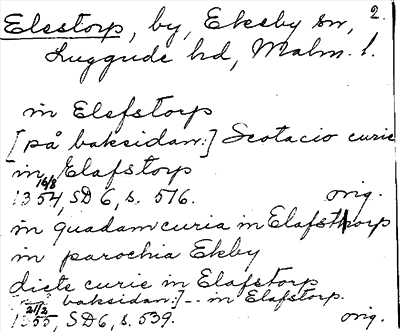 Elestorp, by, Ekeby sn, 2.
Luggude hd, Malm. l.
in Elefstorp
[på baksidan:] Scotacio curie
in Elafstorp
16/8 1354, SD 6, s. 516. orig.
in quadam curia in Elafsthorp
in parochia Ekby
dicte curie in Elafstorp
baksidan:] -- in Elafstorp.
21/2 1355, SD 6, s. 539. orig.